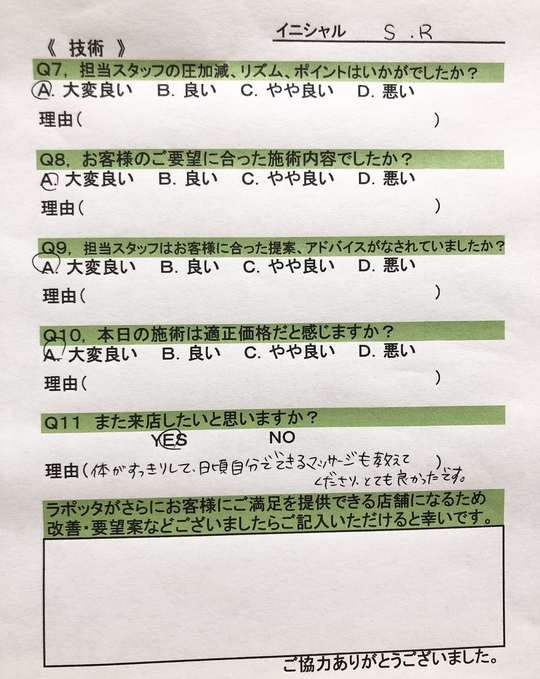 イニシャル S.R
《 技術 》
Q7, 担当スタッフの圧加減、リズム、ポイントはいかがでしたか？
A. 大変良い B. 良い C. やや良い D. 悪い
理由( )
Q8, お客様のご要望に合った施術内容でしたか？
A. 大変良い B. 良い C. やや良い D. 悪い
理由( )
Q9, 担当スタッフはお客様に合った提案、アドバイスがなされていましたか？
A. 大変良い B. 良い C. やや良い D. 悪い
理由( )
Q10, 本日の施術は適正価格だと感じますか？
A. 大変良い B. 良い C. やや良い D. 悪い
理由( )
Q11 また来店したいと思いますか？
YES NO
理由(体がすっきりして、日頃自分でできるマッサージも教えて )
くださり、とても良かったです。
ラポッタがさらにお客様にご満足を提供できる店舗になるため
改善・要望案などございましたらご記入いただけると幸いです。
ご協力ありがとうございました。